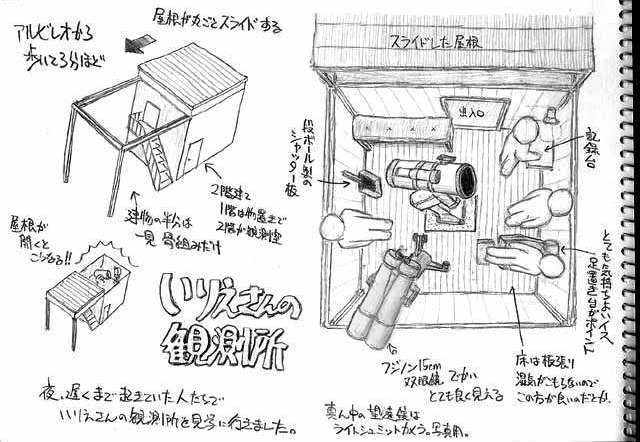 アルビレオから
歩いて3分ほど
屋根が丸ごとスライドする
2階建て
1階は物置きで
2階が観測室
建物の半分は
一見骨組みだけ
屋根が
開くと
こうなる!!
いりえさんの
観測所
夜、遅くまで起きていた人たちで
いりえさんの観測所を見学に行きました。
スライドした屋根
出入口
段ボール製の
シャッター板
記録台
とても気持ちよいイス
足置き台がポイント
フジノン15cm
双眼鏡。でかい
とても良く見える
床は板張り
湿気がこもらないので
この方が良いのだとか。
真ん中の望遠鏡は
ライトシュミットカメラ。写真用。